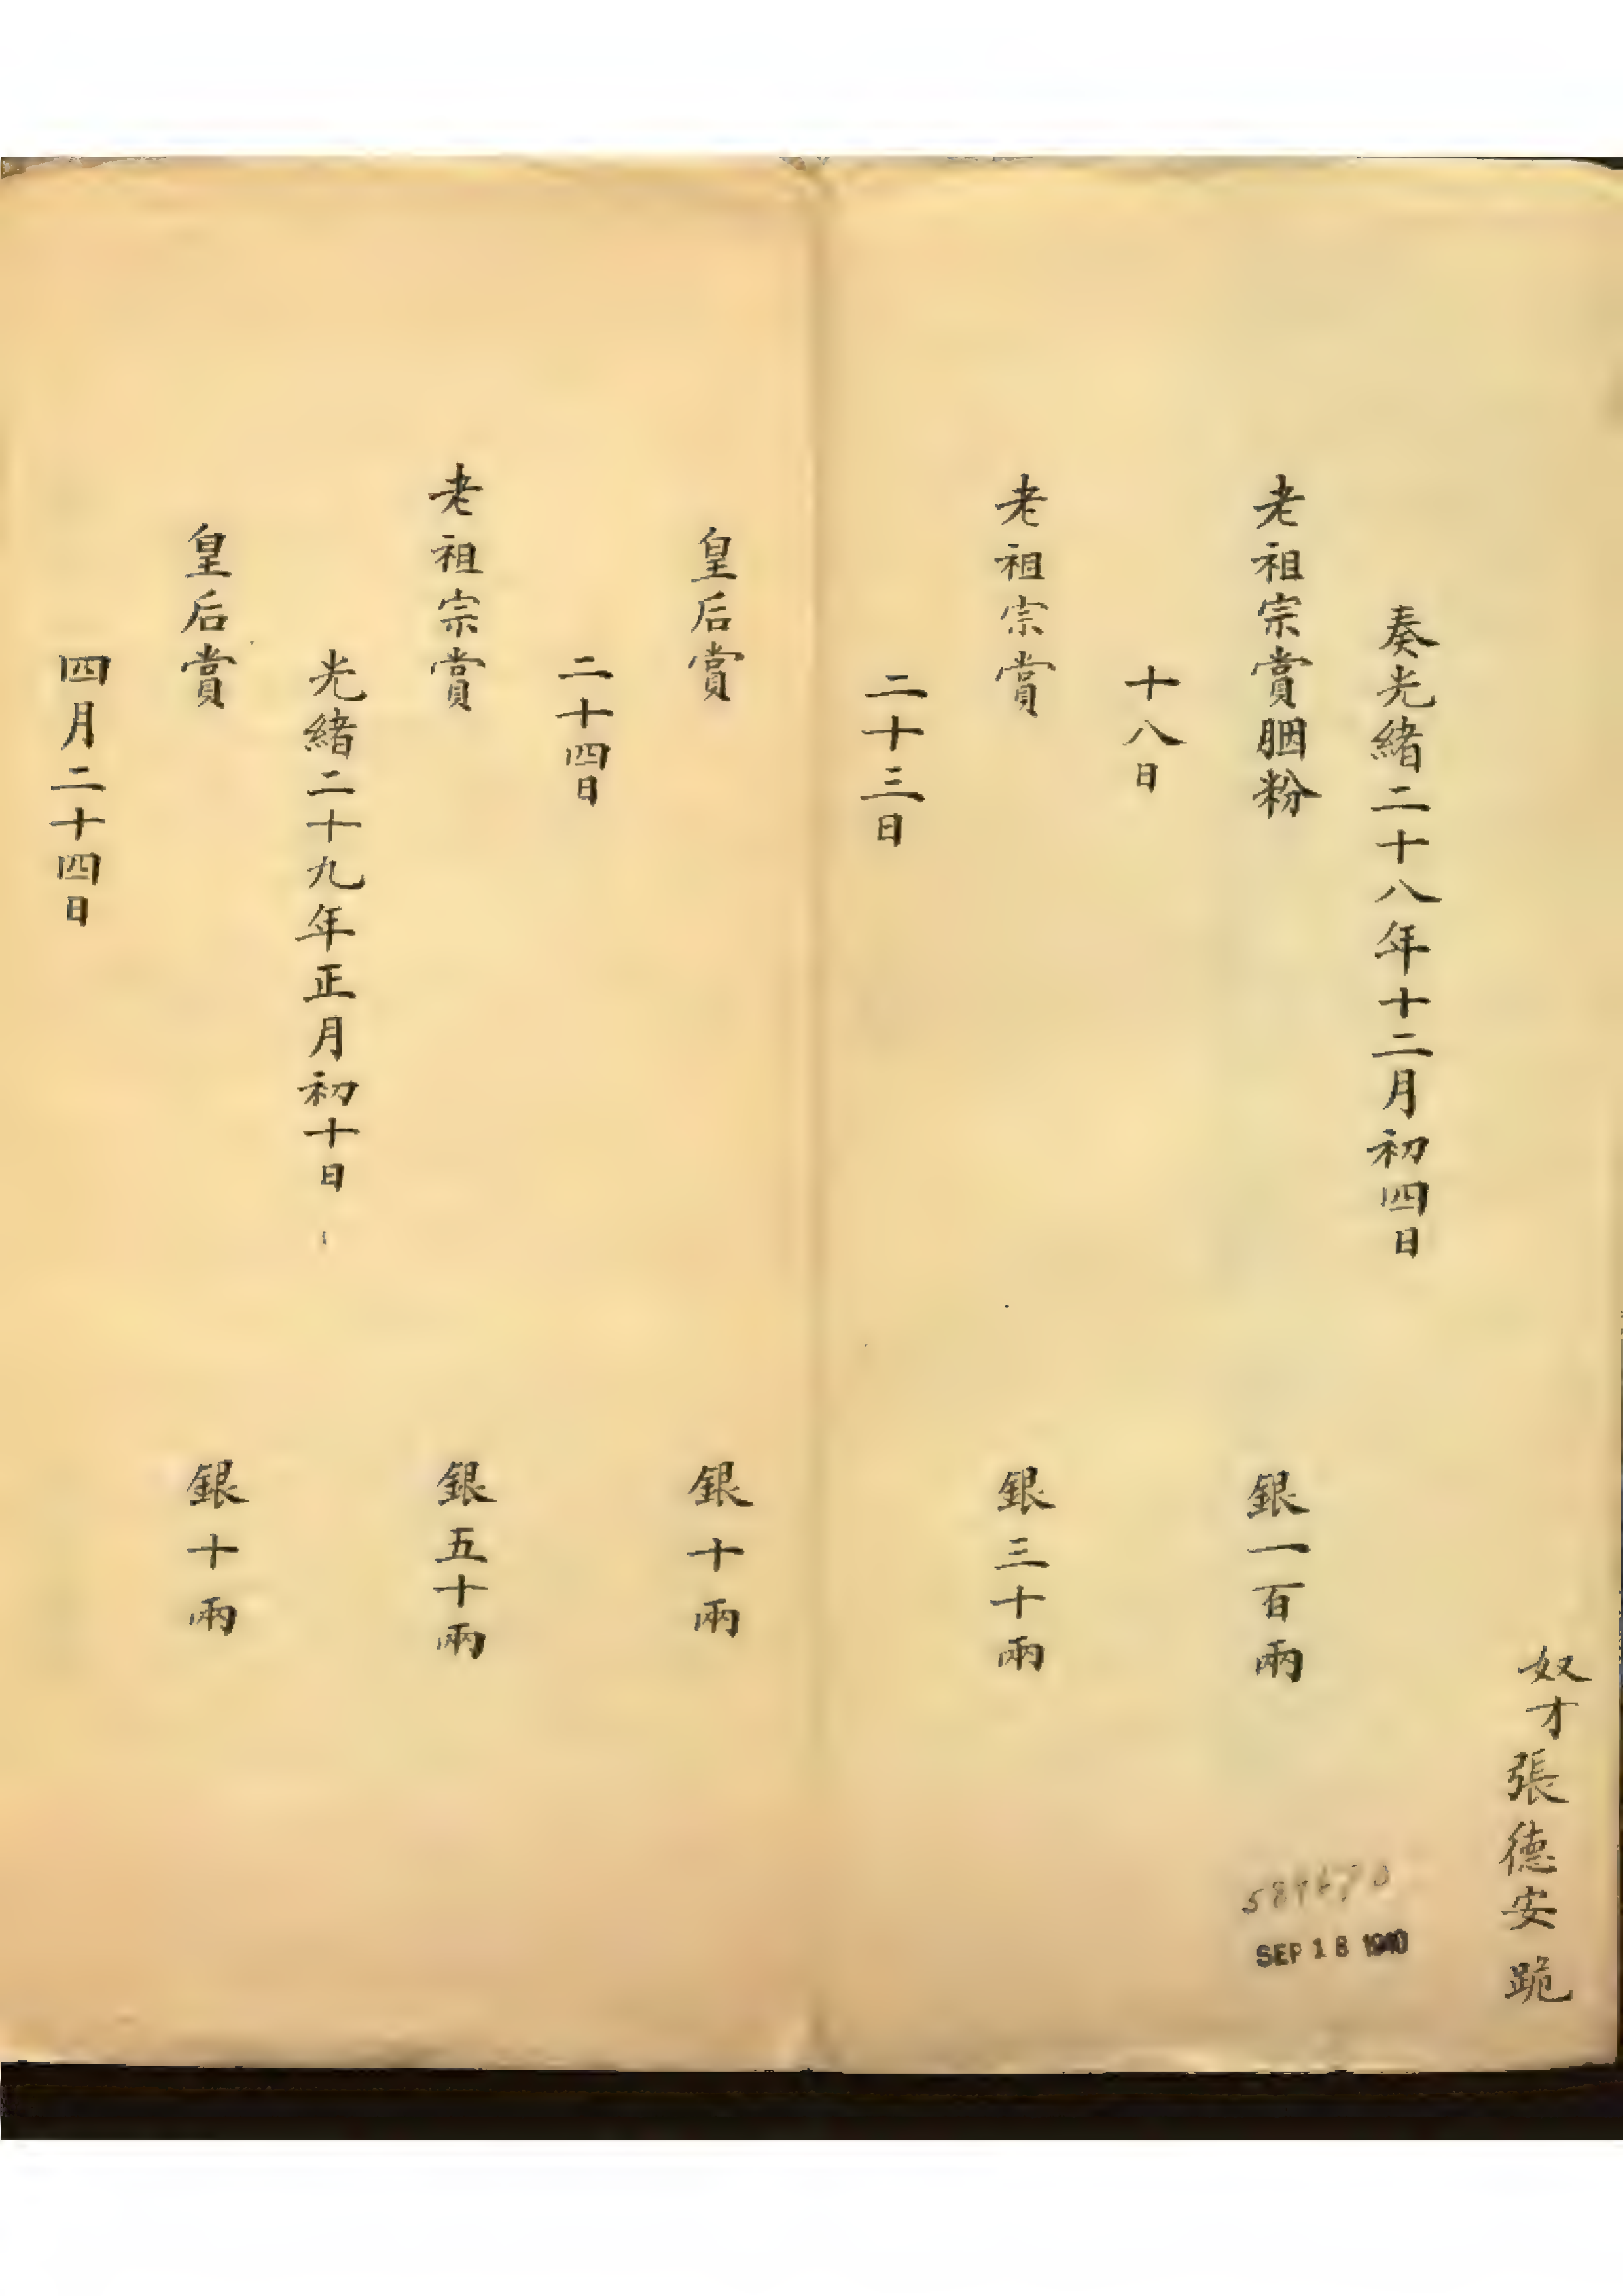 奴才張德安跪
奏光緒二十八年十二月初四日
老祖宗賞胭粉 銀一百兩
十八日
老祖宗賞 銀三十兩
二十三日
皇后賞 銀十兩
二十四日
老祖宗賞 銀五十兩
光緒二十九年正月初十日
皇后賞 銀十兩
四月二十四日
SEP 18 1940